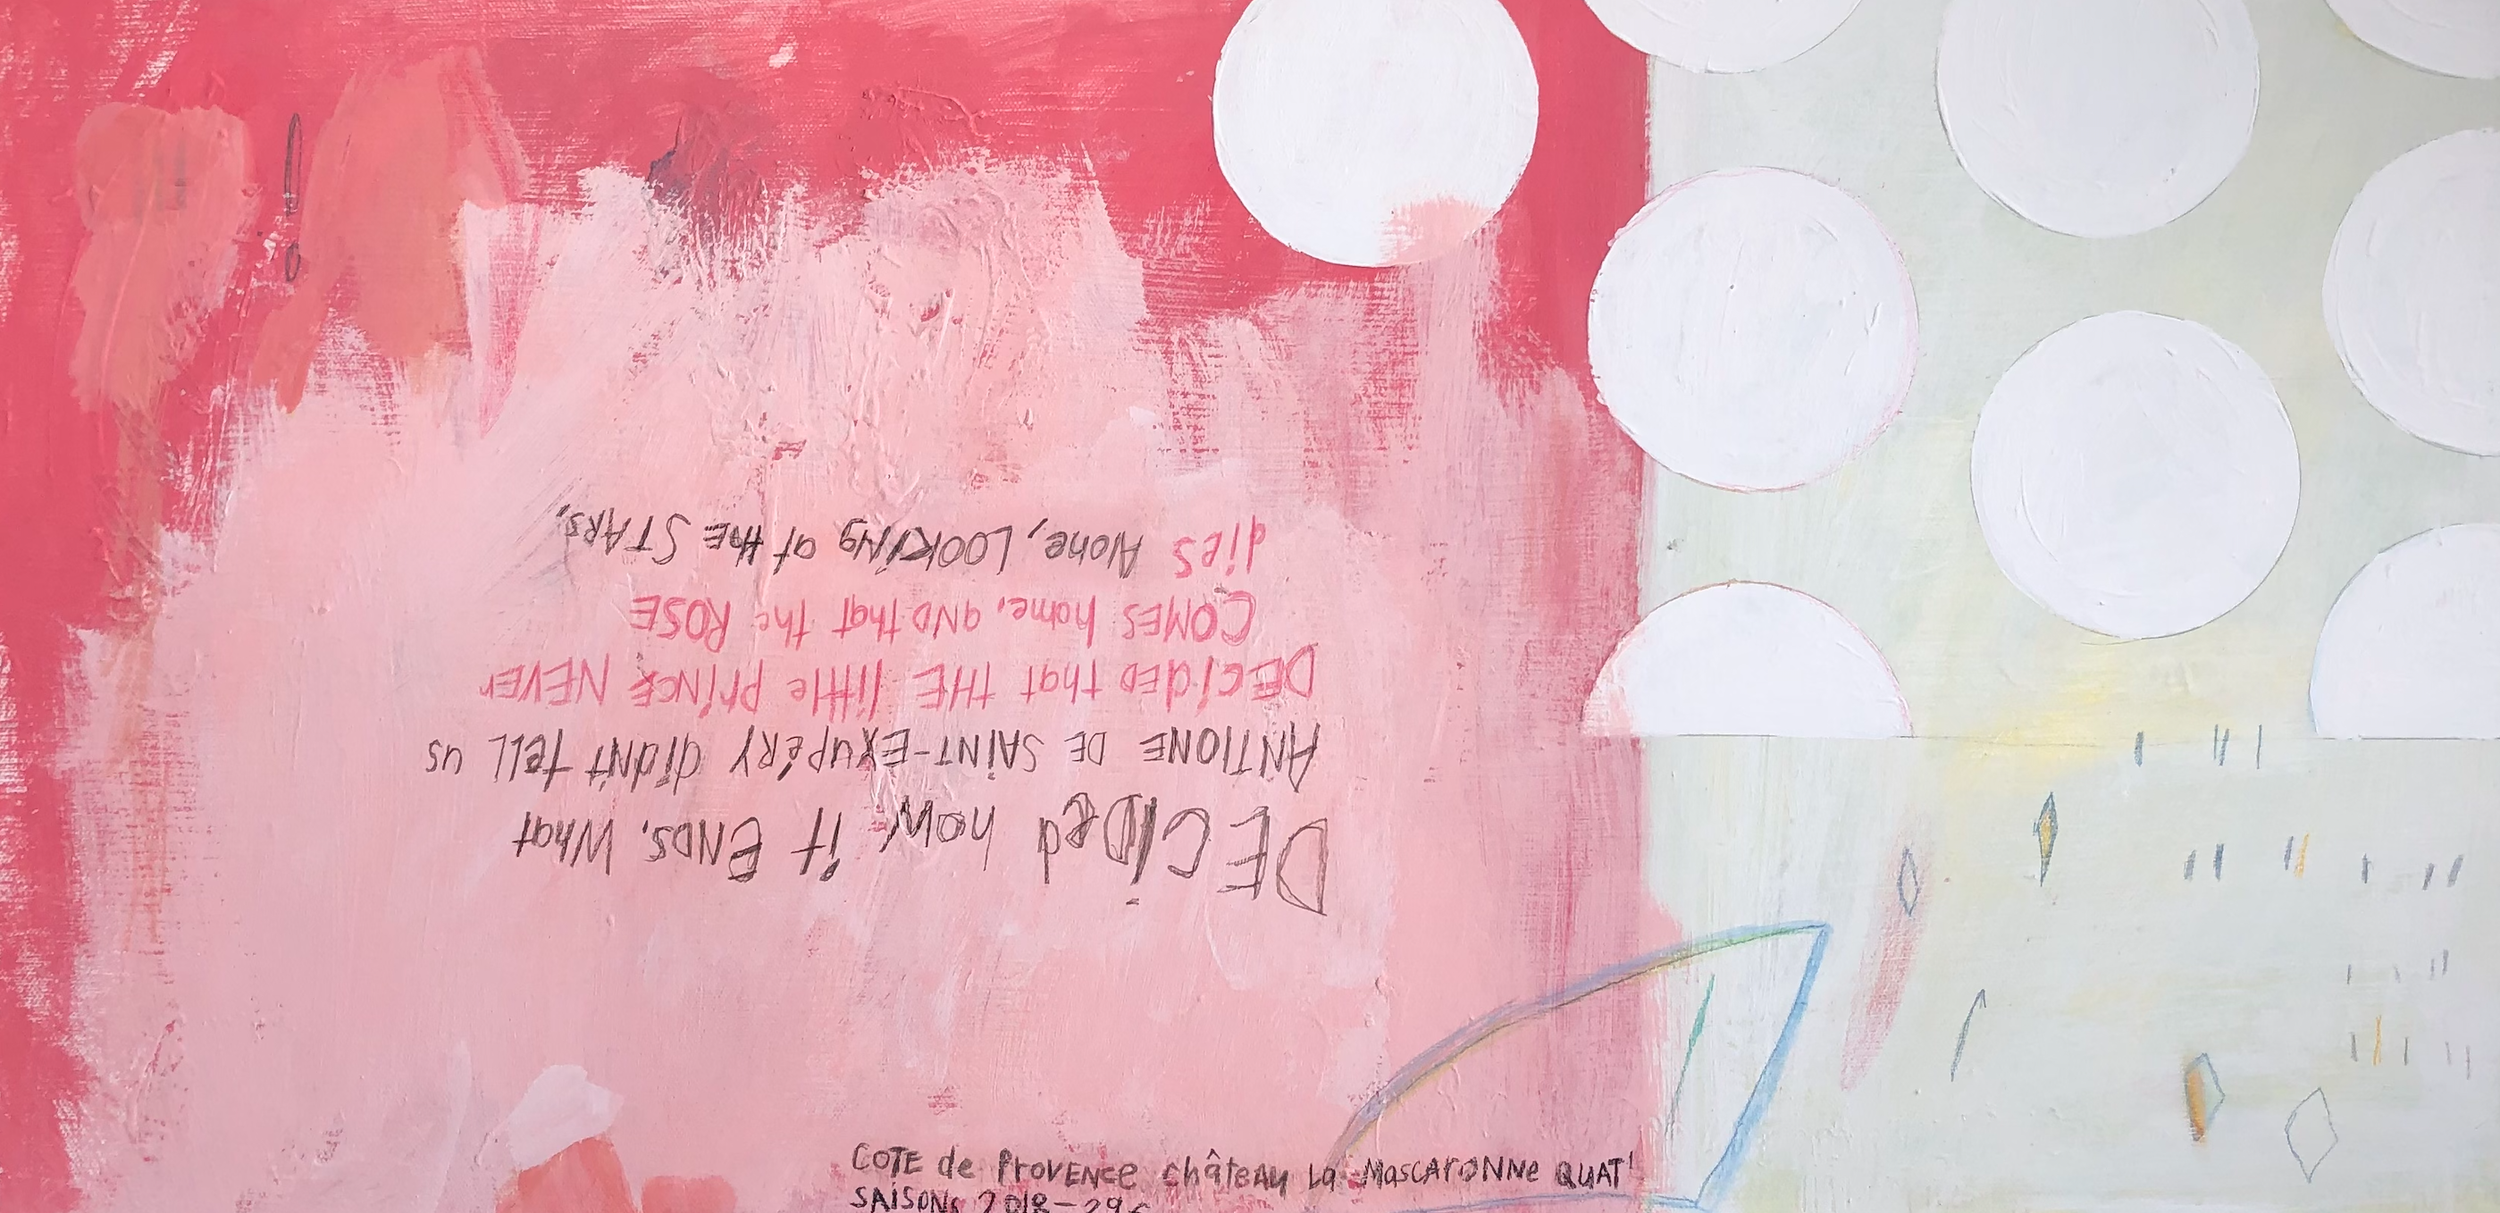 DECIDed how it ENDS. What
ANTIONE DE SAINT-EXUPéRY didn't tell us
DECIdED that THE little PRINCE NEVER
COMES home, AND that the ROSE
dies Alone, LOOKING at the STARS.
COTE de PROVENCE château La MascaroNNe QUAT'
SAISONS 2018-29€